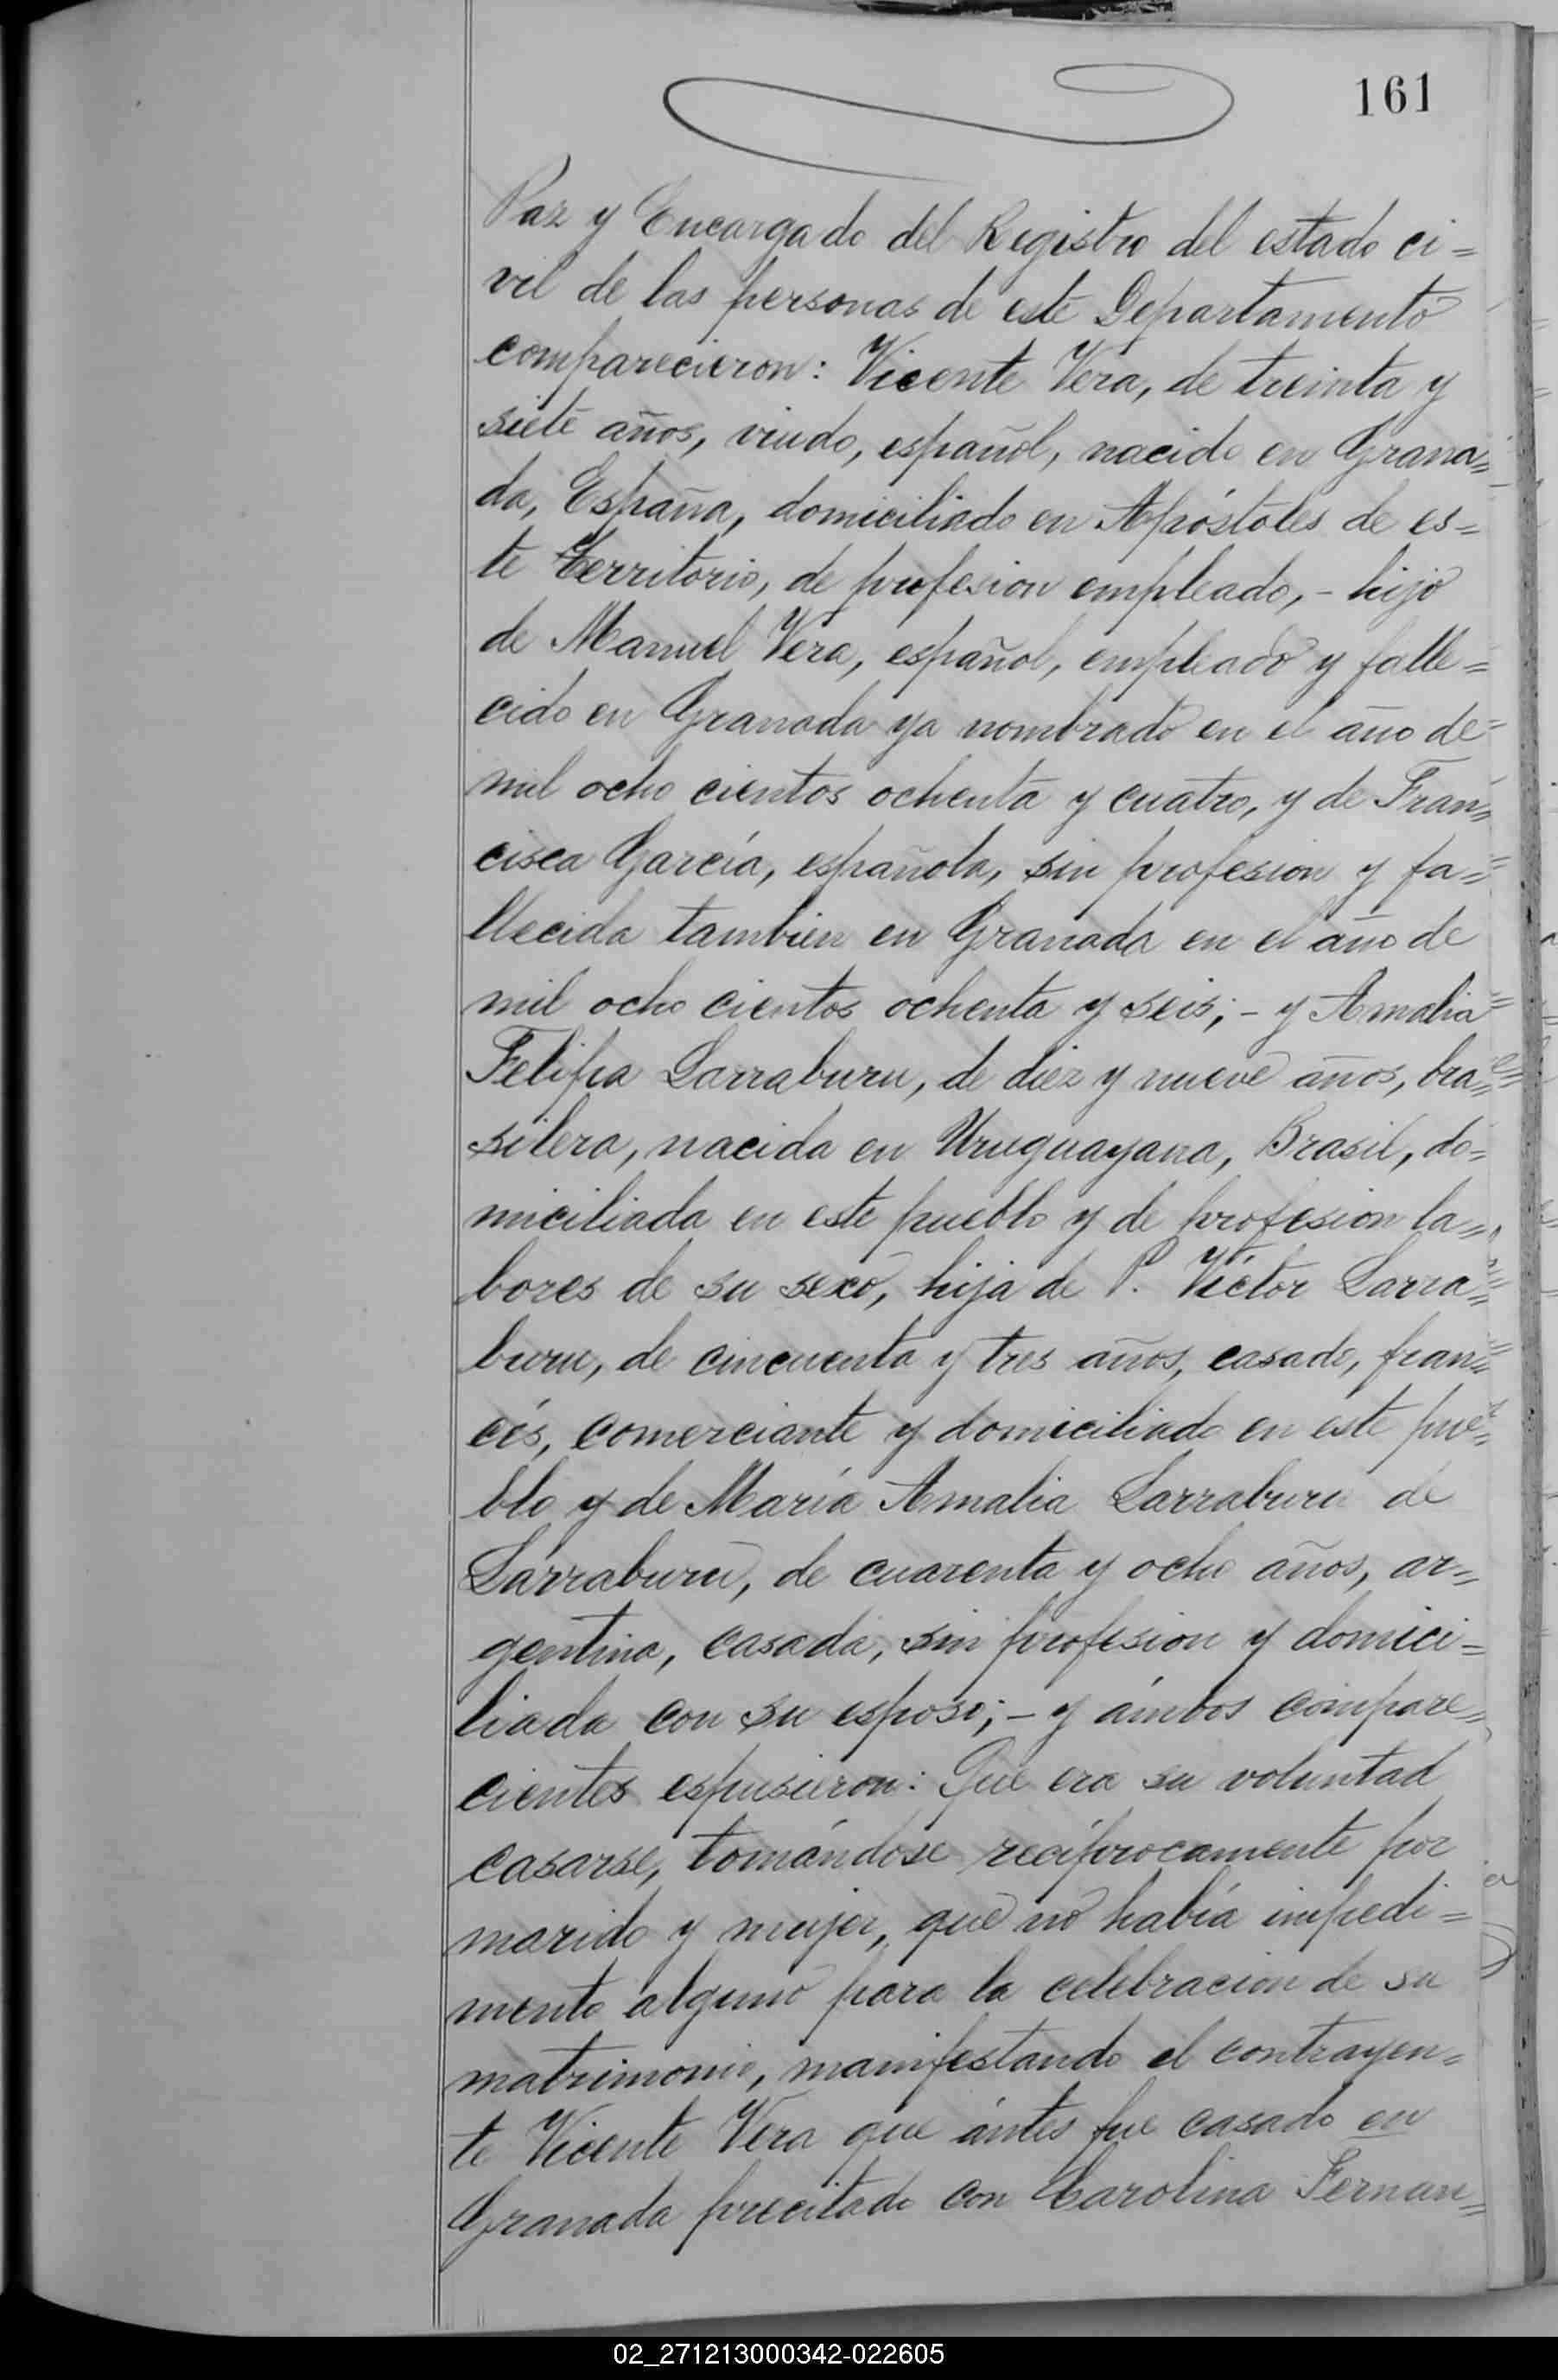 161
Paz y Encargado del Registro del estado ci=
vil de las personas de este Departamento
comparecieron: Vicente Vera, de treinta y
siete años, viudo, español, nacido en Grana=
da, España, domiciliado en Apóstoles de es=
te Territorio, de profesion empleado, - hijo
de Manuel Vera, español, empleado y falle=
cido en Granada ya nombrado en el año de
mil ocho cientos ochenta y cuatro, y de Fran=
cisca García, española, sin profesion y fa=
llecida tambien en Granada en el año de
mil ocho cientos ochenta y seis; - y Amalia
Felipa Larraburu, de diez y nueve años, bra=
silera, nacida en Uruguayana, Brasil, do=
miciliada en este pueblo y de profesion la=
bores de su sexo, hija de P. Víctor Larra=
buru, de cincuenta y tres años, casado, fran=
cés, comerciante y domiciliado en este pue=
blo y de María Amalia Larraburu de
Larraburu, de cuarenta y ocho años, ar=
gentina, casada, sin profesion y domici=
liada con su esposo; - y ámbos compare=
cientes espusieron: Que era su voluntad
casarse, tomándose recíprocamente por
marido y mujer, que no había impedi=
mento alguno para la celebracion de su
matrimonio, manifestando el contrayen=
te Vicente Vera que ántes fue casado en
Granada precitado con Carolina Fernan=
02_271213000342-022605